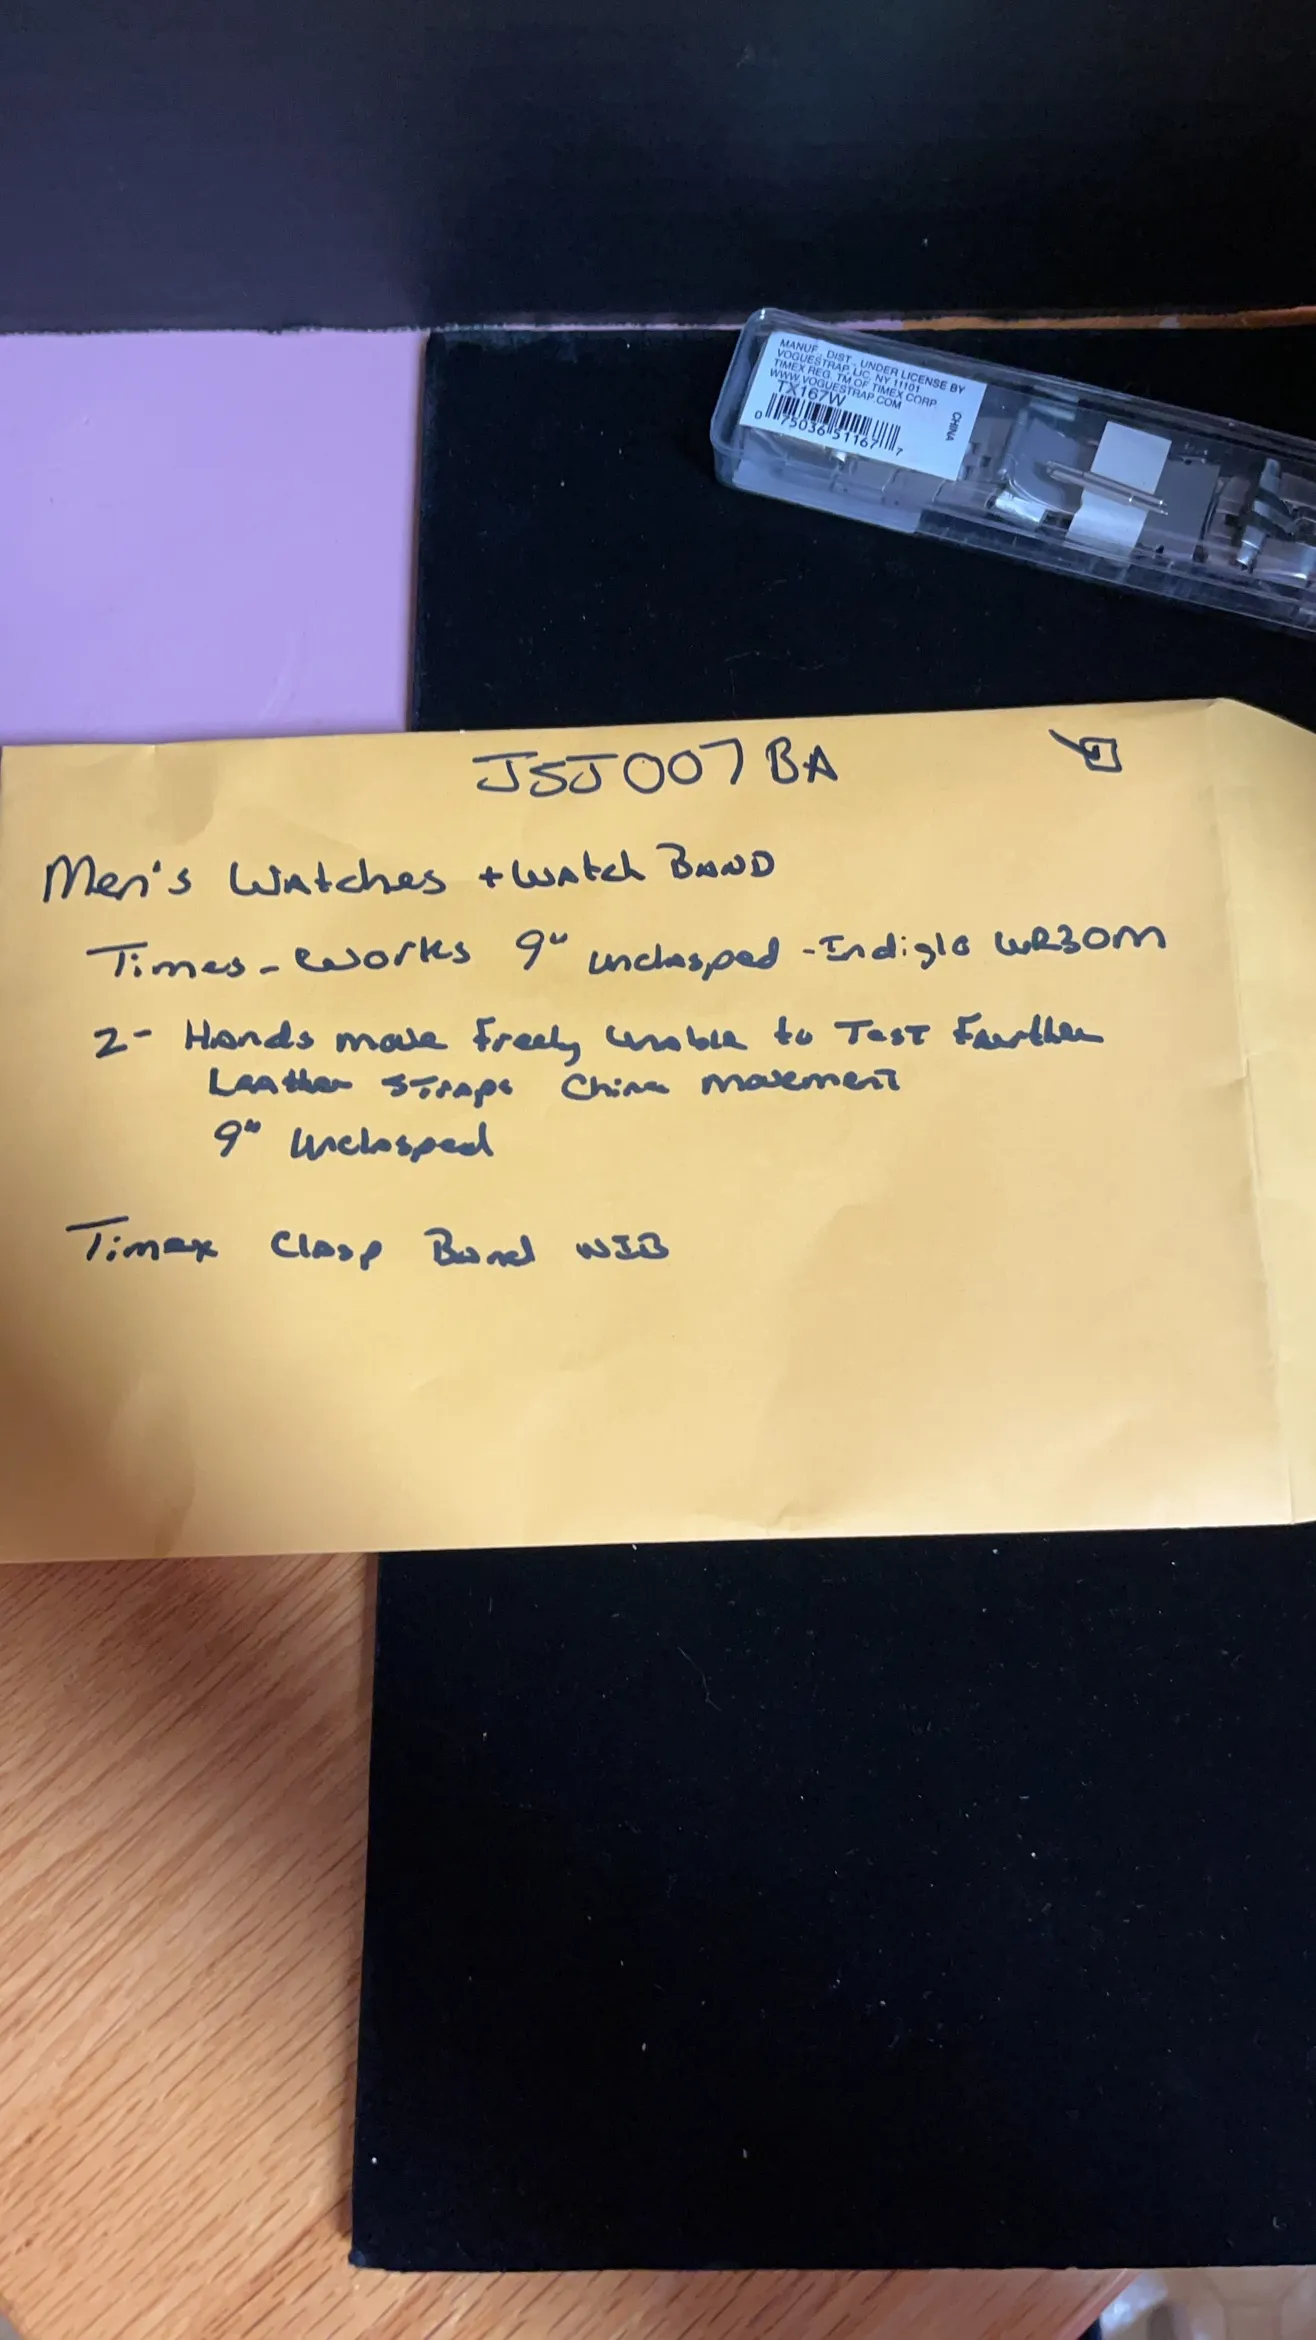 MANUF. DIST. UNDER LICENSE BY
VOGUESTRAP, LIC, NY 11101
TIMEX REG. TM OF TIMEX CORP.
WWW.VOGUESTRAP.COM
TX167W
CHINA
0 75036 51167 7
JSJ007BA
Men's Watches + Watch BAND
Times - Works 9" unclasped - Indiglo WR30M
2- Hands move freely unable to Test Further
Leather STraps China movement
9" Unclasped
Timex Clasp Band NIB